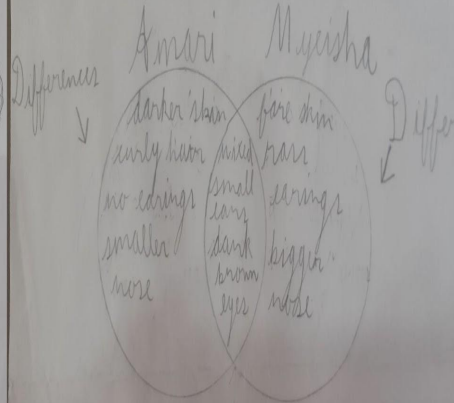 Amari
Myeisha
Differences
Differ
darker skin
curly hair
no earings
smaller
nose
small
ears
dark
brown
eyes
fare skin
earings
bigger
nose